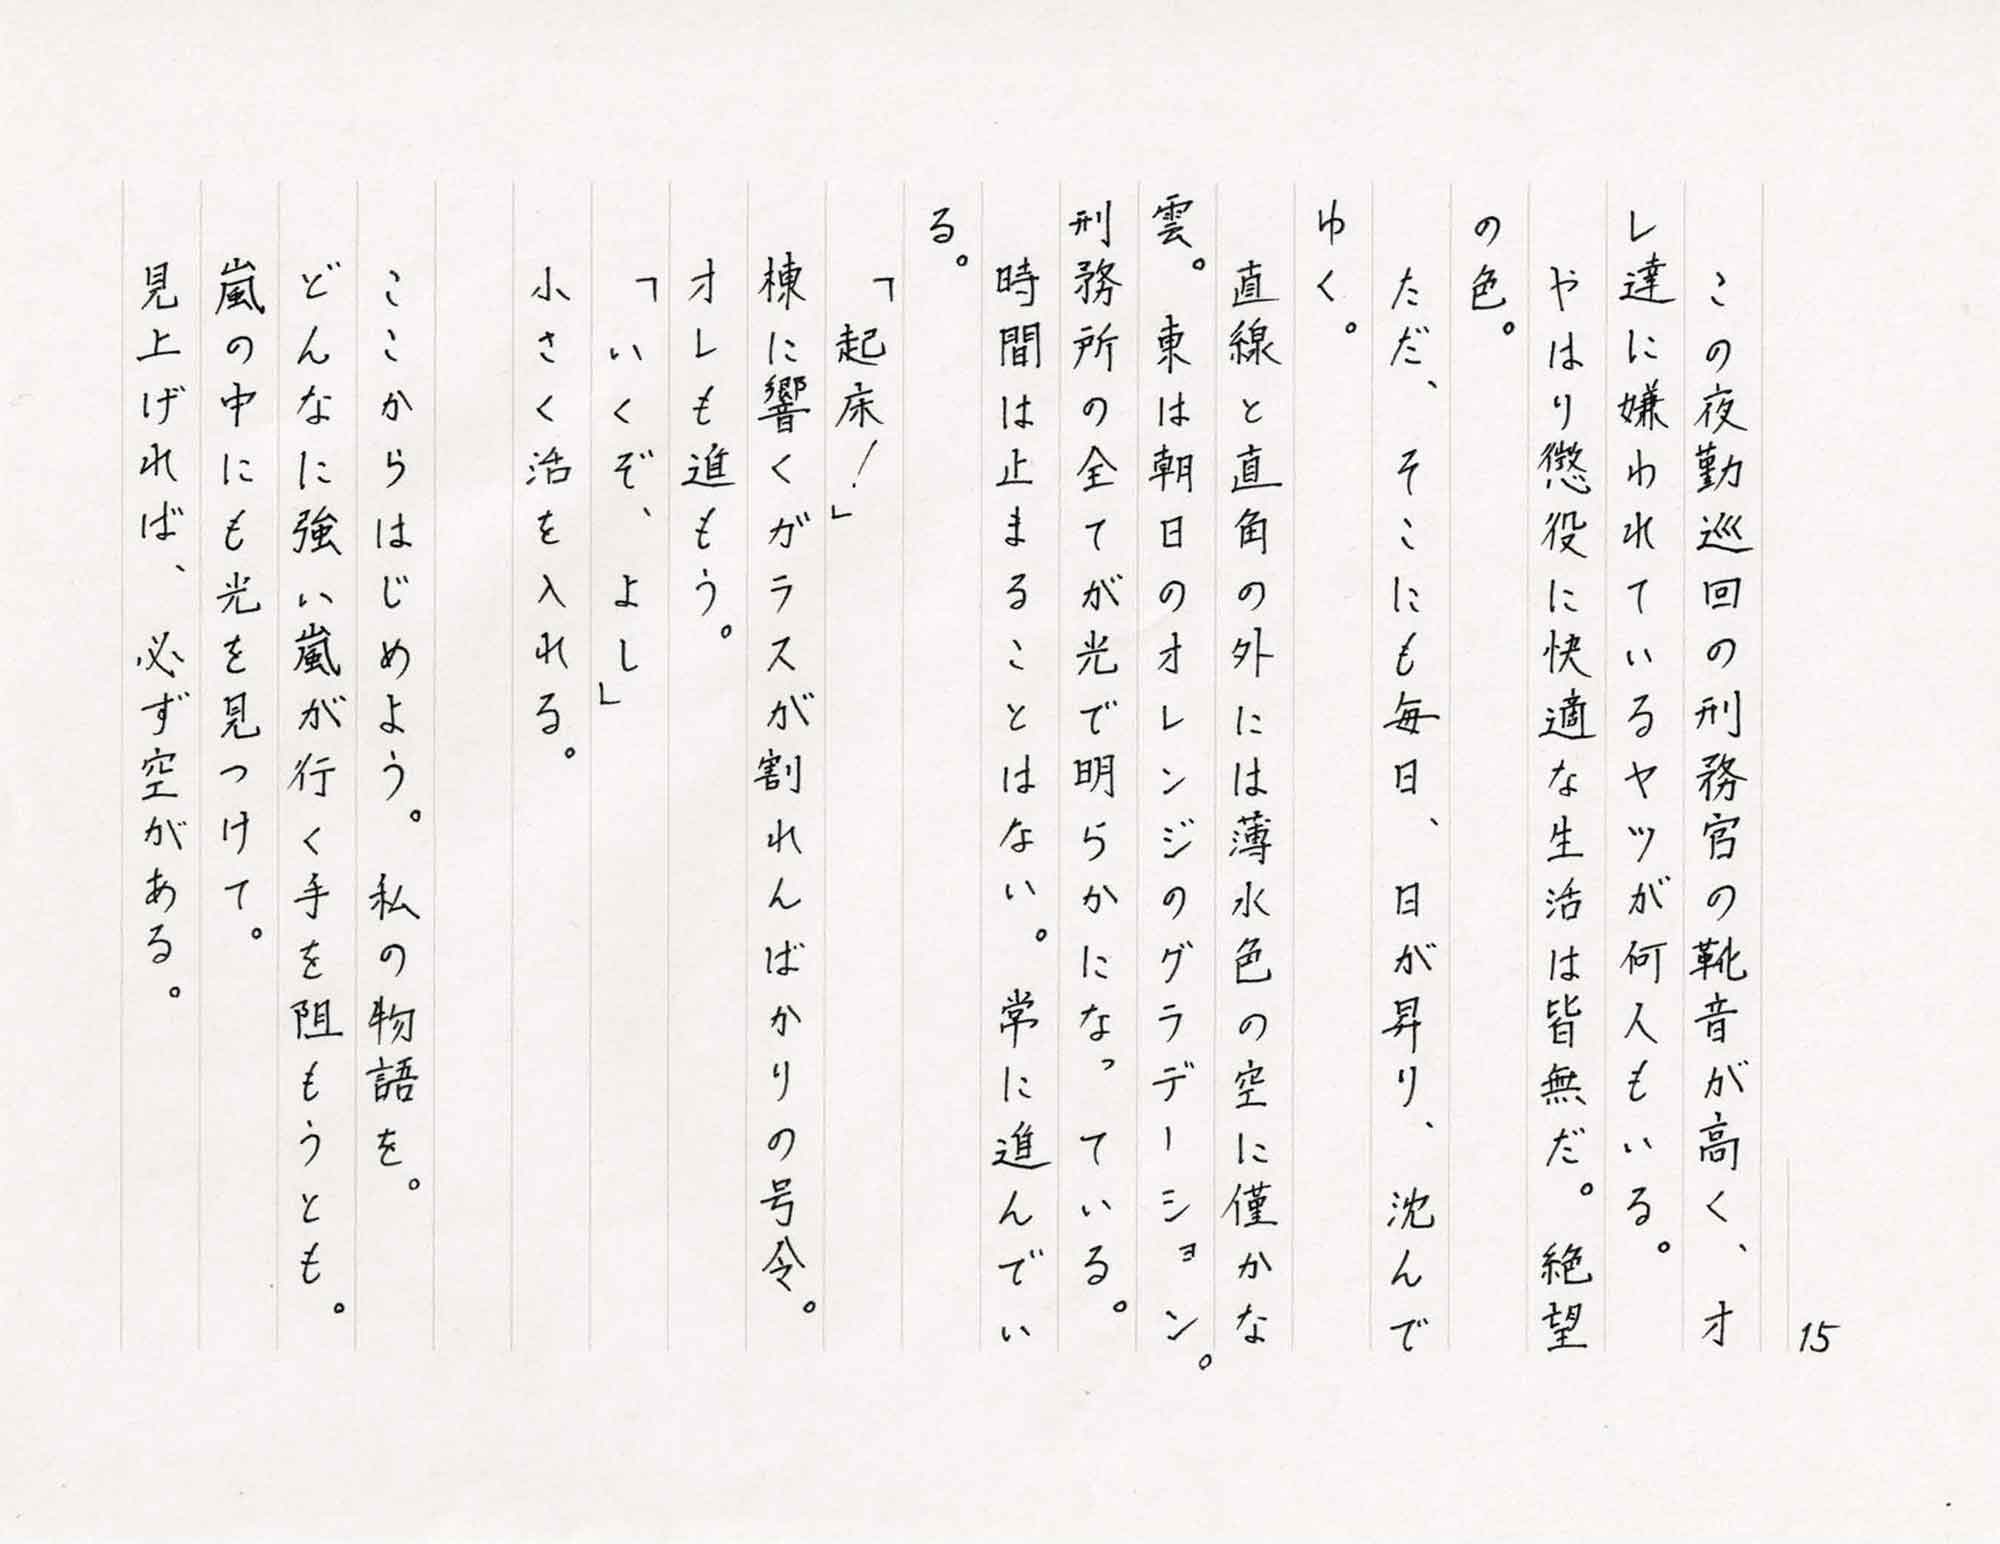 15
この夜勤巡回の刑務官の靴音が高く、オ
レ達に嫌われているヤツが何人もいる。
やはり懲役に快適な生活は皆無だ。絶望
の色。
ただ、そこにも毎日、日が昇り、沈んで
ゆく。
直線と直角の外には薄水色の空に僅かな
雲。東は朝日のオレンジのグラデーション。
刑務所の全てが光で明らかになっている。
時間は止まることはない。常に進んでい
る。
「起床！」
棟に響くガラスが割れんばかりの号令。
オレも進もう。
「いくぞ、よし」
小さく活を入れる。
ここからはじめよう。私の物語を。
どんなに強い嵐が行く手を阻もうとも。
嵐の中にも光を見つけて。
見上げれば、必ず空がある。